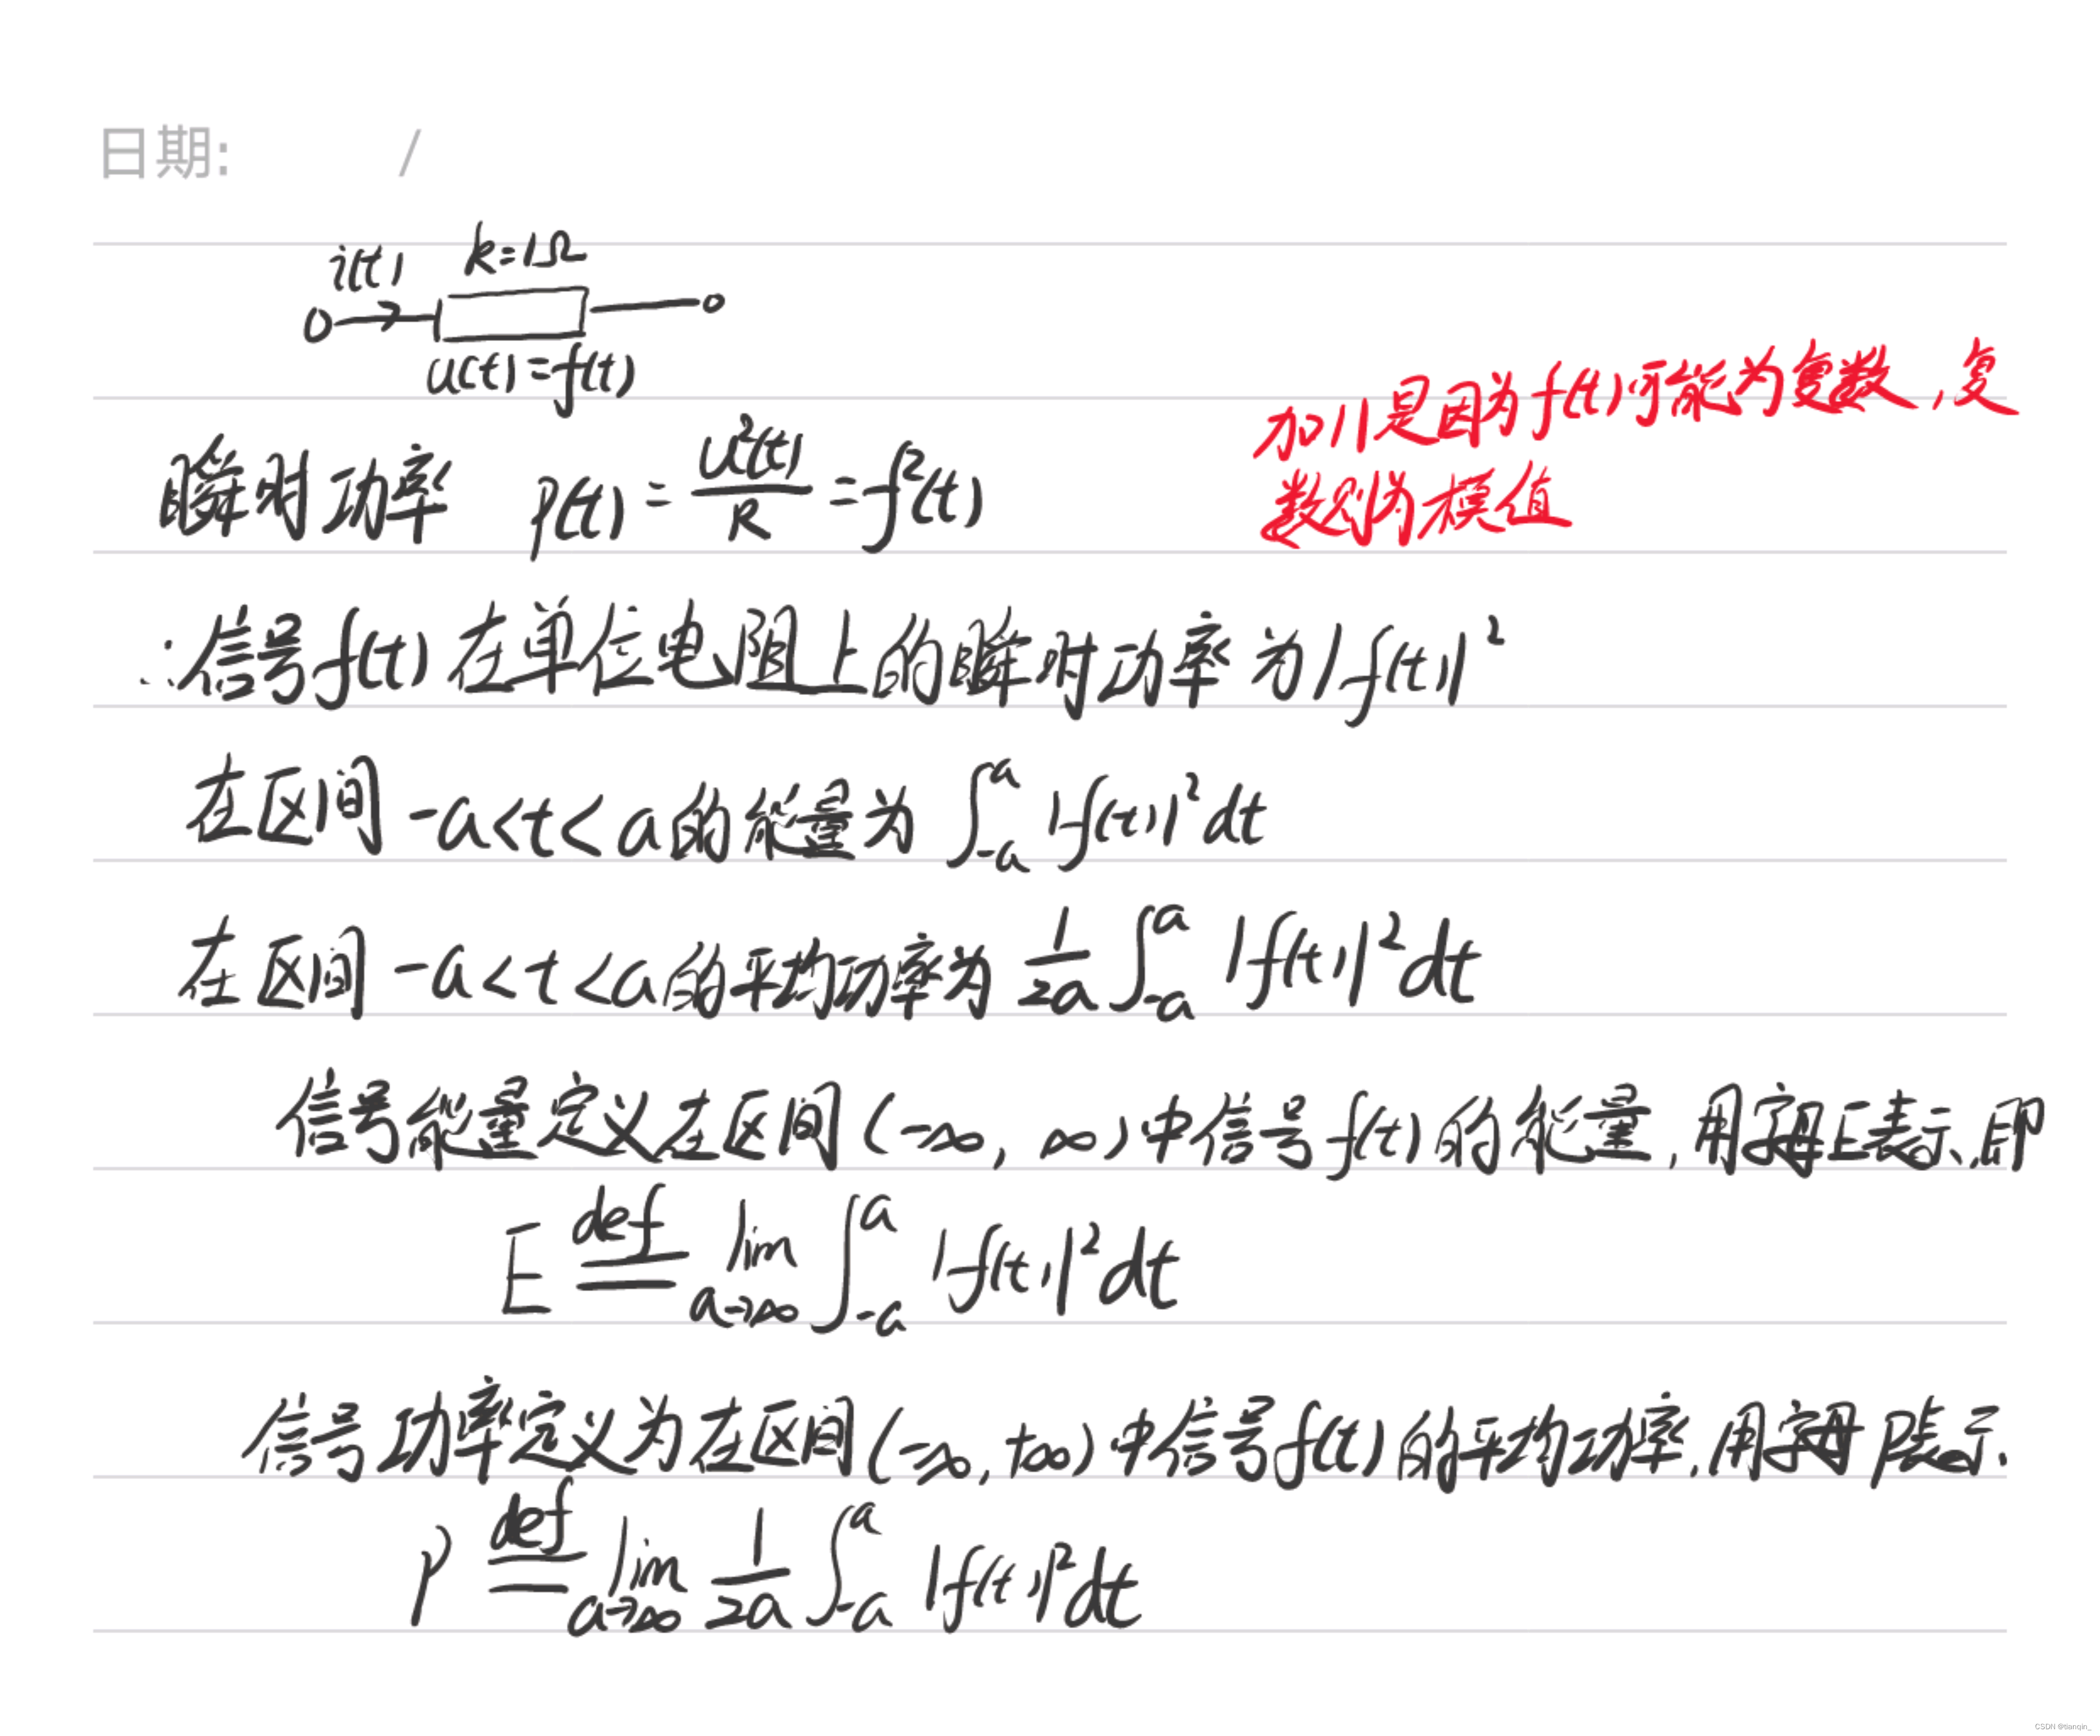 日期: /
i(t) k=1Ω
u(t)=f(t)
加||是因为f(t)可能为复数,复
数则为模值
瞬时功率 p(t)=u²(t)/R=f²(t)
∴信号f(t)在单位电阻上的瞬时功率为|f(t)|²
在区间 -a<t<a的能量为 ∫_{-a}^{a} |f(t)|²dt
在区间 -a<t<a的平均功率为 1/2a ∫_{-a}^{a} |f(t)|²dt
信号能量定义在区间(-∞, ∞)中信号f(t)的能量,用字母E表示,即
E def= lim_{a→∞} ∫_{-a}^{a} |f(t)|²dt
信号功率定义为在区间(-∞,+∞)中信号f(t)的平均功率,用字母P表示.
P def= lim_{a→∞} 1/2a ∫_{-a}^{a} |f(t)|²dt